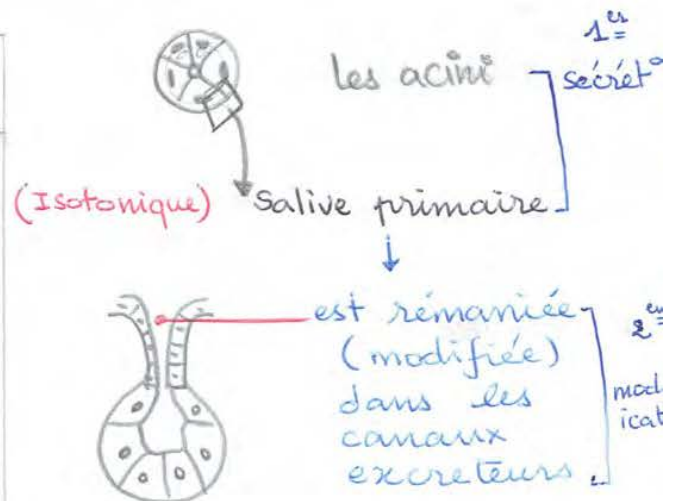 les acini
1er
sécrét°
(Isotonique) Salive primaire
est rémaniée
(modifiée)
dans les
canaux
excreteurs
2em
mod
icat